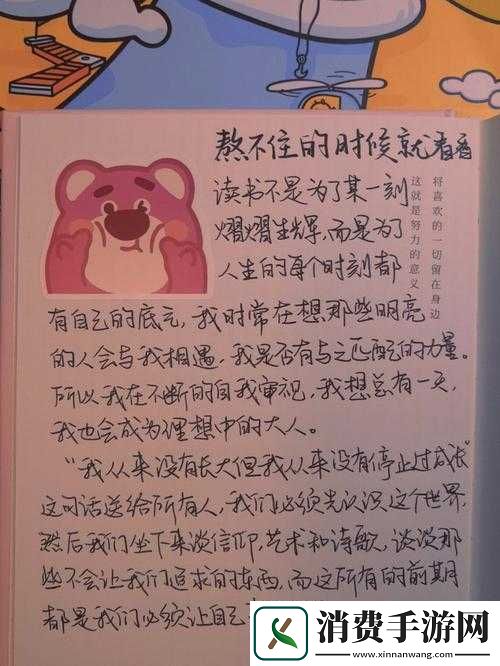 熬不住的时候就看看
读书不是为了某一刻
熠熠生辉,而是为了
人生的每个时刻都
有自己的底气,我时常在想那些明亮
的人会与我相遇,我是否有与之匹配的力量。
所以我在不断的自我审视,我想总有一天,
我也会成为理想中的大人。
“我从来没有长大但我从来没有停止过成长”
这句话送给所有人,我们必须先认识这个世界,
然后我们坐下来谈信仰,艺术和诗歌,谈谈那
些不会让我们追求的东西,而这所有的前期月
都是我们必须让自己
将喜欢的一切留在身边
这就是努力的意义
消费手游网
www.xinnanwang.com